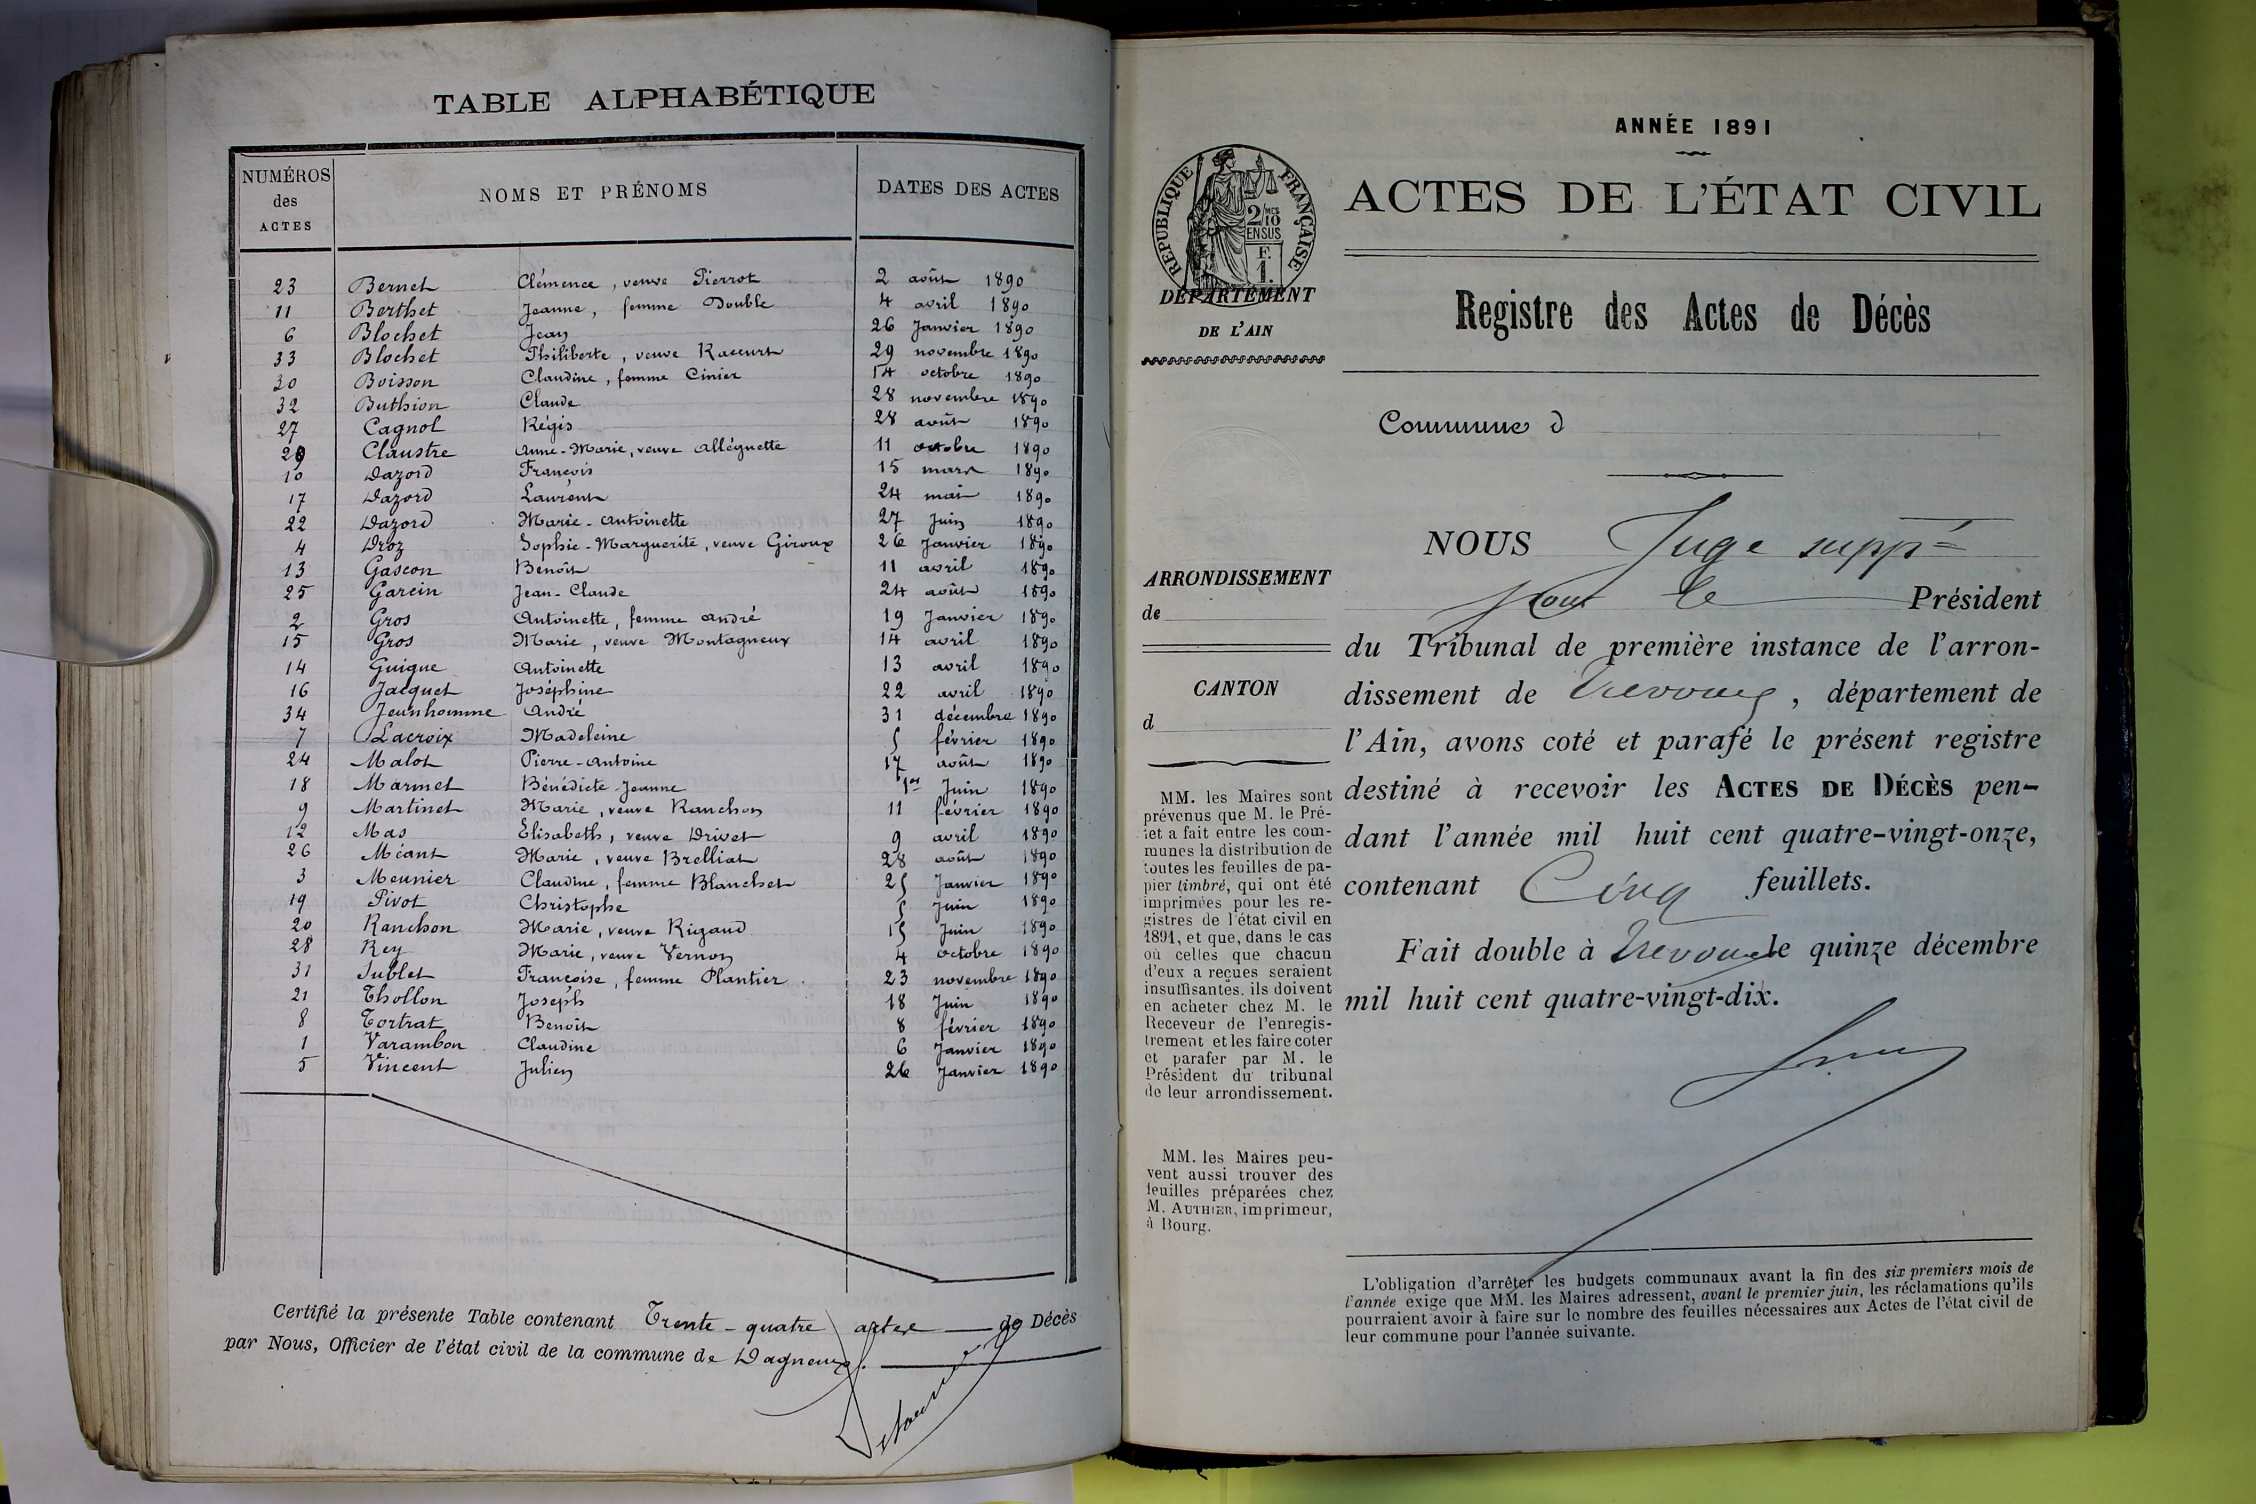 TABLE ALPHABÉTIQUE
NUMÉROS des ACTES NOMS ET PRÉNOMS DATES DES ACTES
23 Bernet Clémence, veuve Pierrot 2 août 1890
11 Berthet Jeanne, femme Double 4 avril 1890
6 Blochet Jean 26 Janvier 1890
33 Blochet Philiberte, veuve 29 novembre 1890
30 Boisson Claudine, femme Cinier 14 octobre 1890
32 Buthion Claude 28 novembre 1890
27 Cagnol Régis 28 août 1890
29 Claustre Anne-Marie, veuve Alléguette 11 octobre 1890
10 Dazord François 15 mars 1890
17 Dazord Laurent 24 mai 1890
22 Dazord Marie-Antoinette 27 Juin 1890
4 Droz Sophie-Marguerite, veuve Giroux 26 Janvier 1890
13 Gascon Benoît 11 avril 1890
25 Garcin Jean-Claude 24 août 1890
2 Gros Antoinette, femme André 19 Janvier 1890
15 Gros Marie, veuve Montagneux 14 avril 1890
14 Guigue Antoinette 13 avril 1890
16 Jacquet Joséphine 22 avril 1890
34 Jeunhomme André 31 décembre 1890
7 Lacroix Madeleine 5 février 1890
24 Malot Pierre-Antoine 17 août 1890
18 Marmet Bénédicte-Jeanne 1er Juin 1890
9 Martinet Marie, veuve Ranchon 11 février 1890
12 Mas Elisabeth, veuve Drivet 9 avril 1890
26 Méant Marie, veuve Brelliat 28 août 1890
3 Meunier Claudine, femme Blanchet 25 Janvier 1890
19 Pivot Christophe 5 Juin 1890
20 Ranchon Marie, veuve Rigaud 15 Juin 1890
28 Rey Marie, veuve Vernon 4 octobre 1890
31 Sublet Françoise, femme Plantier 23 novembre 1890
21 Thollon Joseph 18 Juin 1890
8 Tortrat Benoît 8 février 1890
1 Varambon Claudine 6 Janvier 1890
5 Vincent Julien 26 Janvier 1890
Certifié la présente Table contenant Trente-quatre actes de Décès
par Nous, Officier de l'état civil de la commune de Dagneux.
ANNÉE 1891
RÉPUBLIQUE FRANÇAISE
2/10 MES EN SUS
F. 1.
ACTES DE L'ÉTAT CIVIL
DÉPARTEMENT
DE L'AIN
Registre des Actes de Décès
Commune d
NOUS Juge suppt
pour le Président
du Tribunal de première instance de l'arron-
dissement de Trévoux, département de
l'Ain, avons coté et parafé le présent registre
destiné à recevoir les ACTES DE DÉCÈS pen-
dant l'année mil huit cent quatre-vingt-onze,
contenant Cinq feuillets.
Fait double à Trévoux le quinze décembre
mil huit cent quatre-vingt-dix.
ARRONDISSEMENT
de
CANTON
d
MM. les Maires sont
prévenus que M. le Pré-
fet a fait entre les com-
munes la distribution de
toutes les feuilles de pa-
pier timbré, qui ont été
imprimées pour les re-
gistres de l'état civil en
1891, et que, dans le cas
où celles que chacun
d'eux a reçues seraient
insuffisantes, ils doivent
en acheter chez M. le
Receveur de l'enregis-
trement et les faire coter
et parafer par M. le
Président du tribunal
de leur arrondissement.
MM. les Maires peu-
vent aussi trouver des
feuilles préparées chez
M. AUTHIER, imprimeur,
à Bourg.
L'obligation d'arrêter les budgets communaux avant la fin des six premiers mois de
l'année exige que MM. les Maires adressent, avant le premier juin, les réclamations qu'ils
pourraient avoir à faire sur le nombre des feuilles nécessaires aux Actes de l'état civil de
leur commune pour l'année suivante.